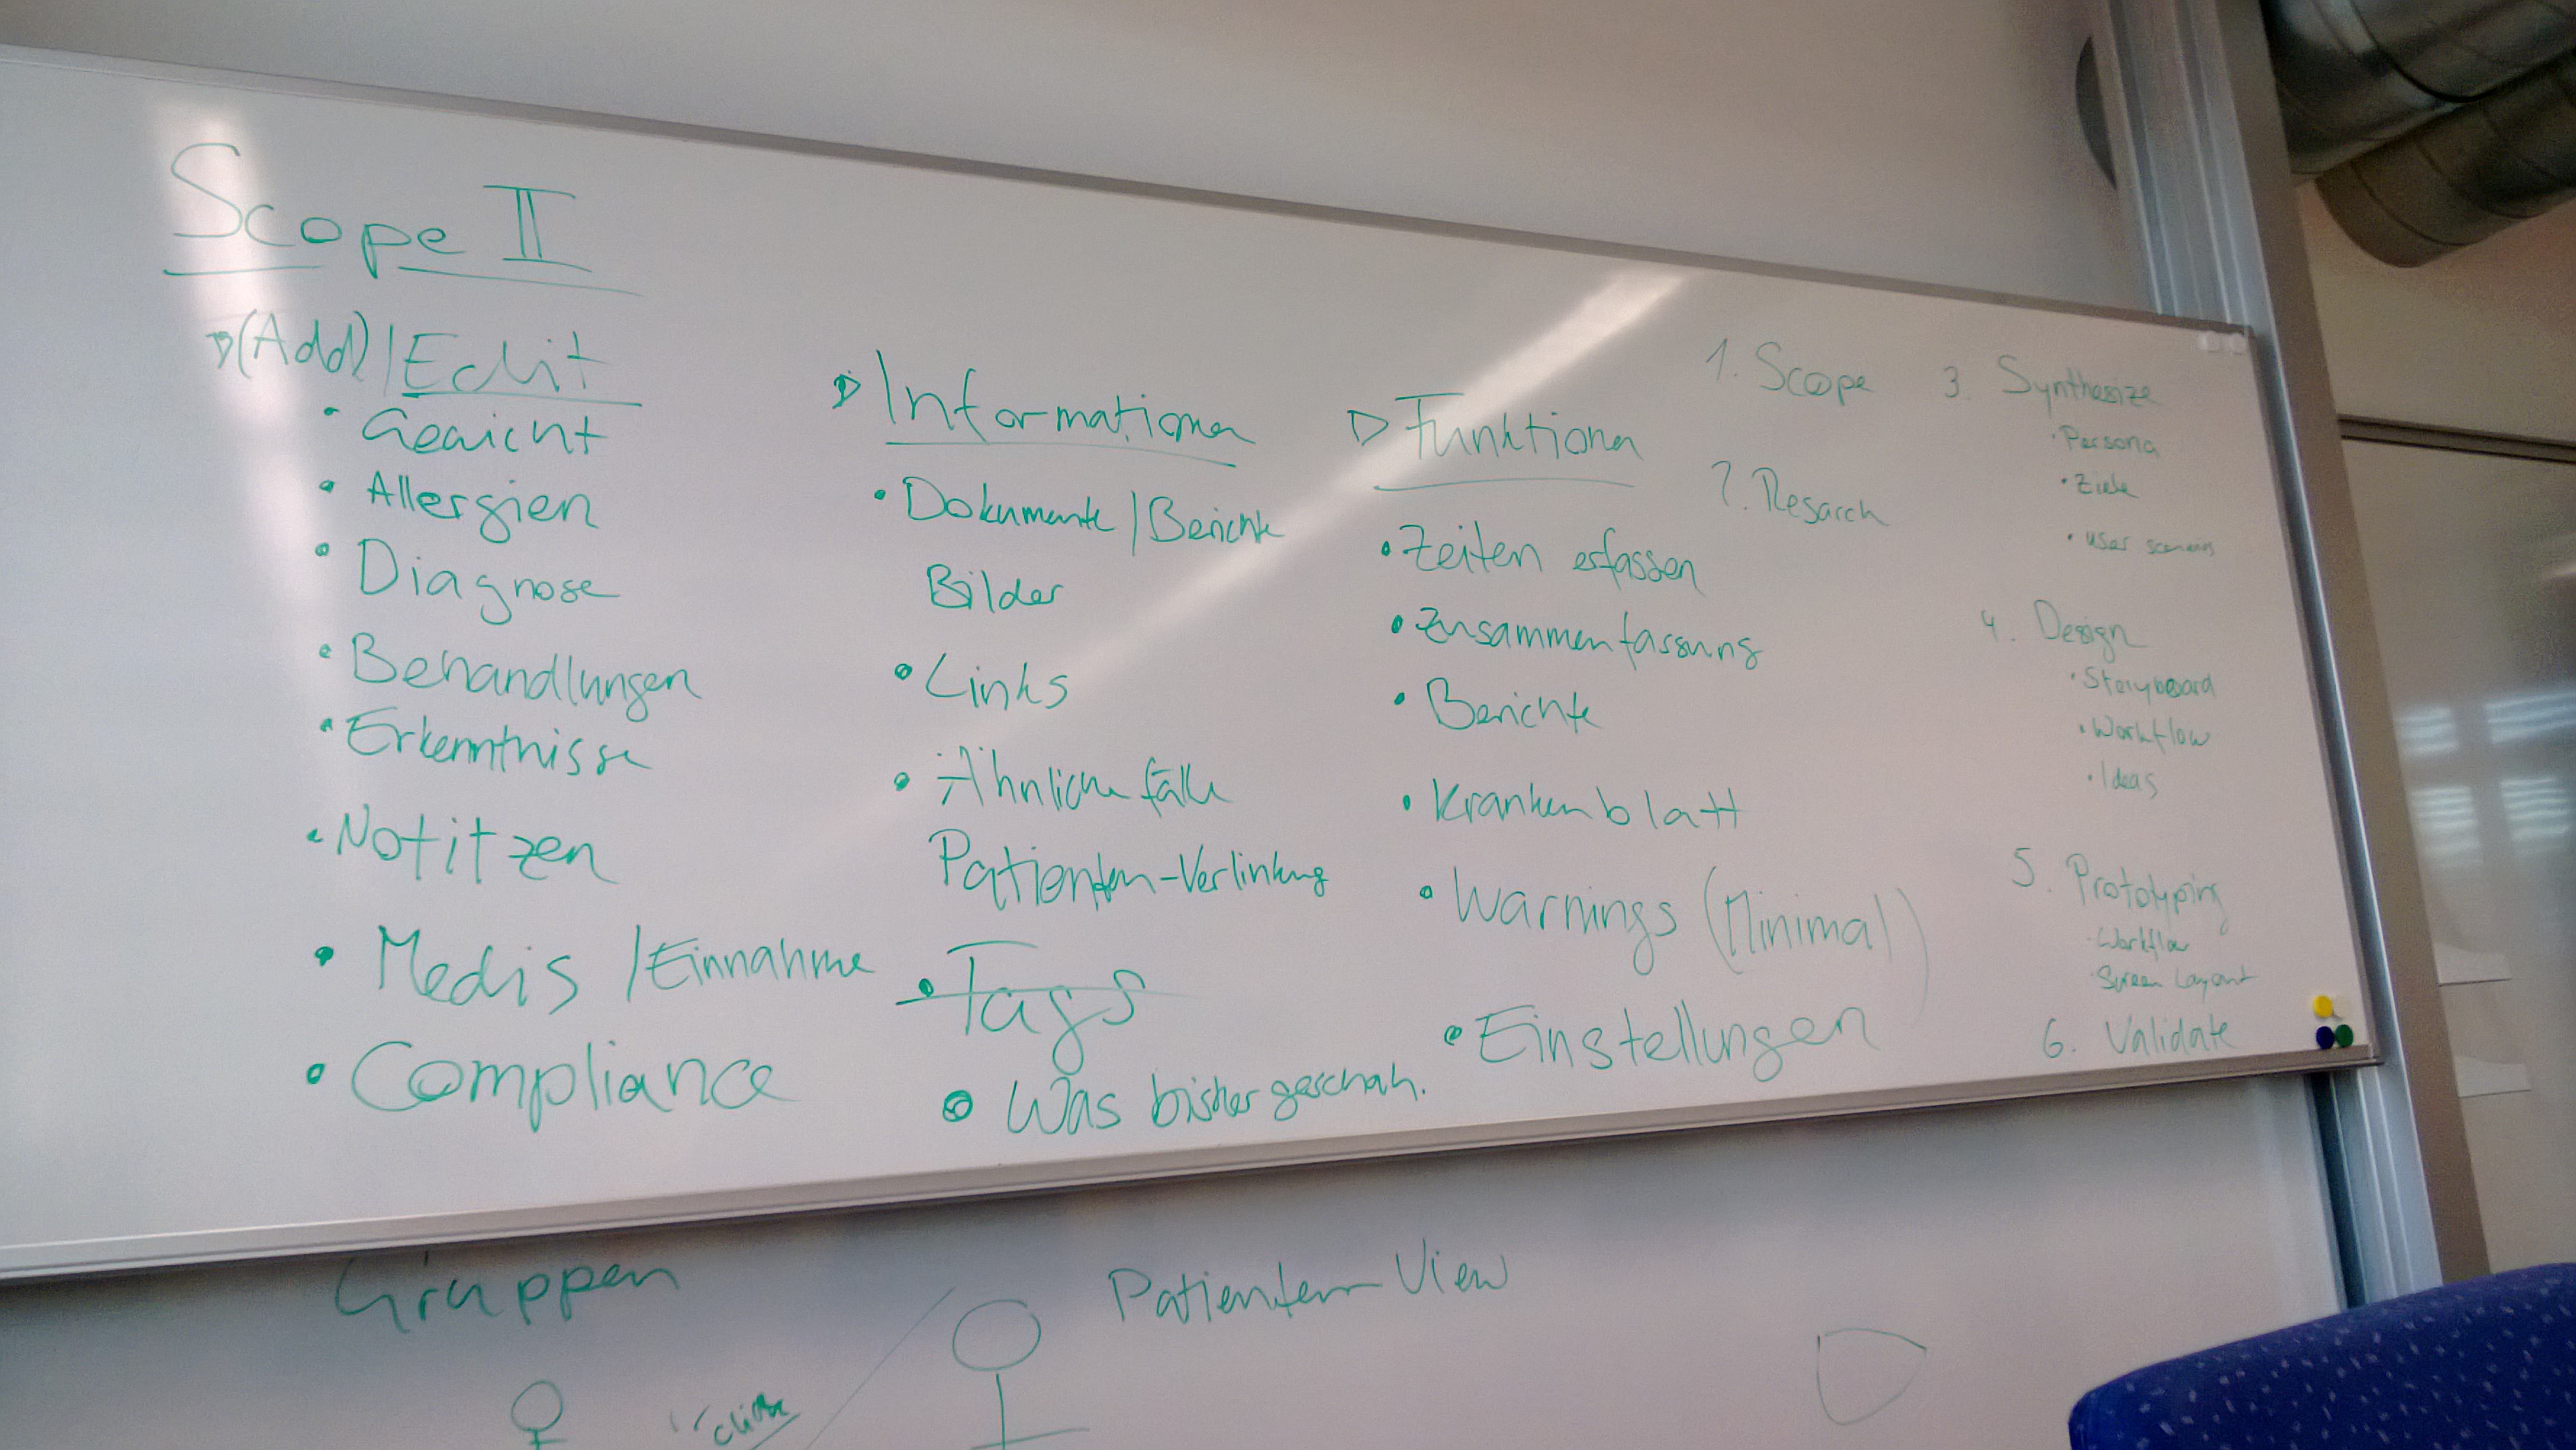 Scope II
(Add) / Edit
• Gewicht
• Allergien
• Diagnose
• Behandlungen
• Erkenntnisse
• Notitzen
• Medis / Einnahme
• Compliance
Informationen
• Dokumente / Berichte
Bilder
• Links
• Ähnliche Fälle
Patienten-Verlinkung
• Tags
• Was bisher geschah.
Funktionen
• Zeiten erfassen
• Zusammenfassung
• Berichte
• Krankenblatt
• Warnings (Minimal)
• Einstellungen
1. Scope
2. Resarch
3. Synthesize
• Persona
• Ziele
• User scenarios
4. Design
• Storyboard
• Workflow
• Ideas
5. Prototyping
• Workflow
• Screen Layout
6. Validate
Gruppen
Patienten-View